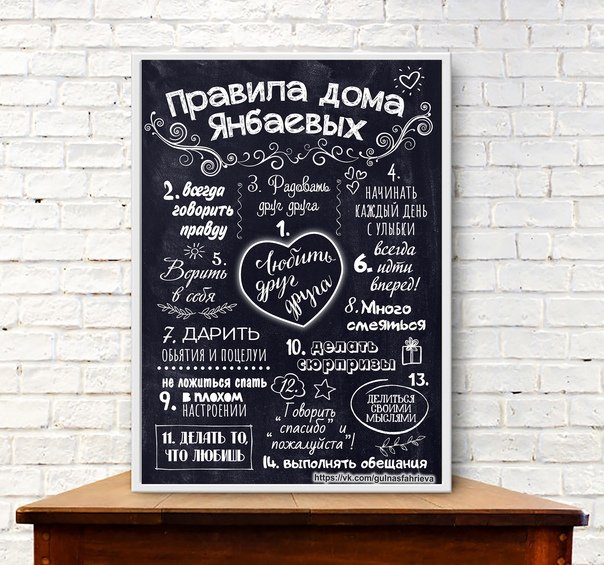 Правила дома
Янбаевых
1.
Любить
друг
друга
2. всегда
говорить
правду
3. Радовать
друг друга
4.
начинать
каждый день
с улыбки
5.
Верить
в себя
всегда
6. идти
вперед!
7. дарить
объятия и поцелуи
8. Много
смеяться
не ложиться спать
9. в плохом
настроении
10. делать
сюрпризы
11. делать то,
что любишь
12.
"Говорить
"спасибо" и
"пожалуйста"!
13.
делиться
своими
мыслями
14. выполнять обещания
https://vk.com/gulnasfahrieva